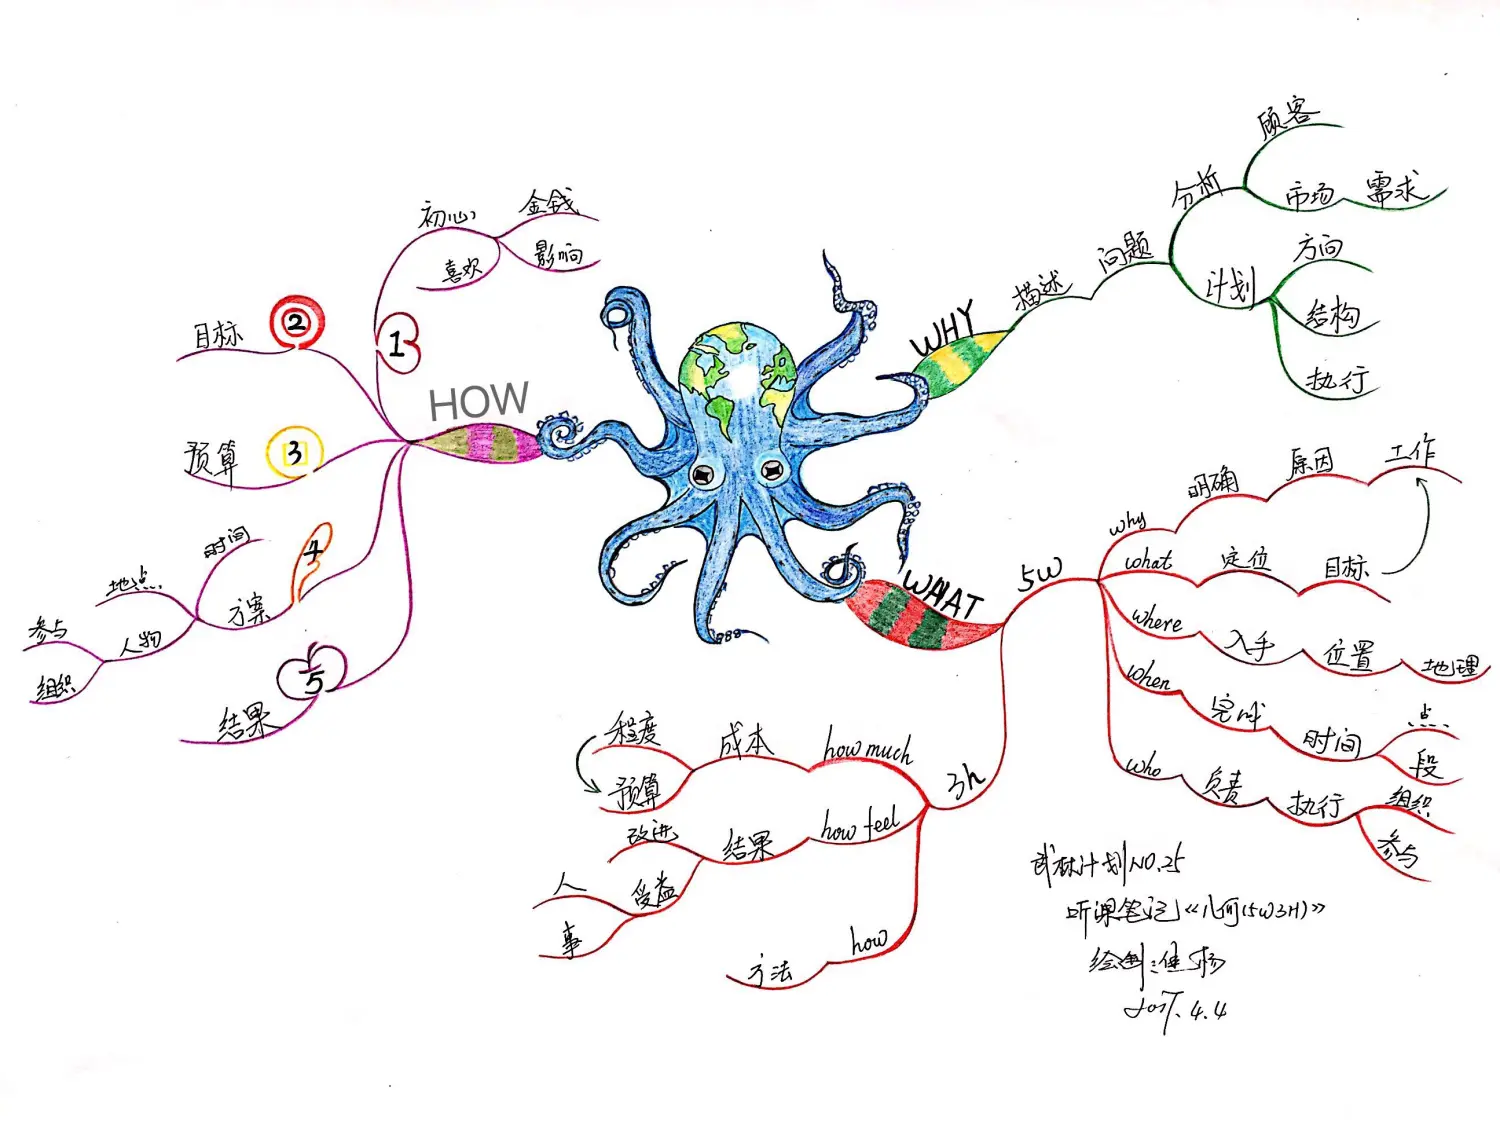 WHY
描述
问题
分析
顾客
市场
需求
计划
方向
结构
执行
WHAT
5W
why
明确
原因
工作
what
定位
目标
where
入手
位置
地理
when
完成
时间
点
段
who
负责
执行
组织
参与
3h
how much
成本
程度
预算
how feel
结果
改进
受益
人
事
how
方法
HOW
1
初心
金钱
影响
喜欢
2
目标
3
预算
4
方案
时间
地点
人物
参与
组织
5
结果
武林计划NO.25
听课笔记《几何(5W3H)》
绘制:
2017.4.4